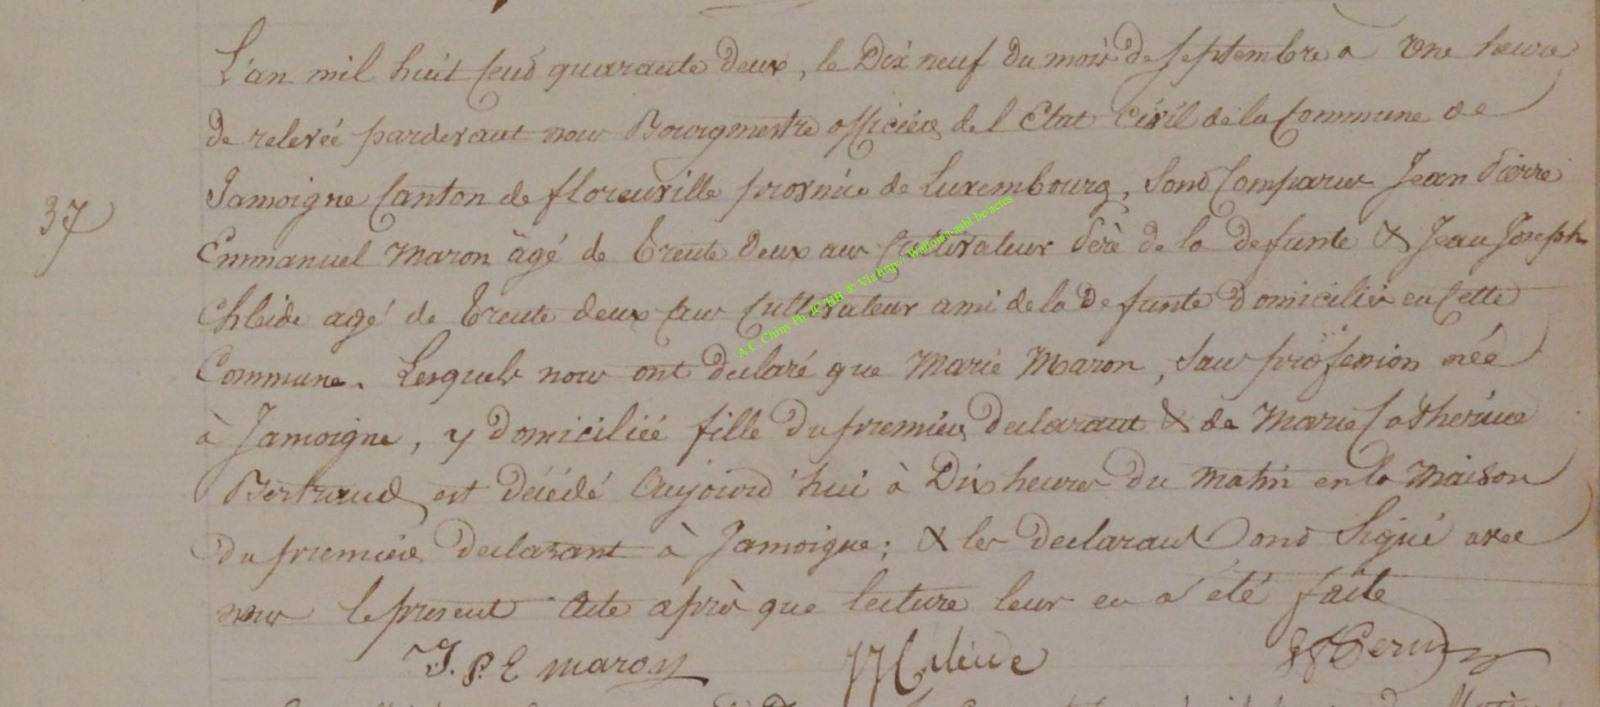 L'an mil huit cent quarante deux, le Dix neuf du mois de septembre a une heure
de relevée pardevant nous Bourgmestre officier de l Etat Civil de la Commune de
37 Jamoigne Canton de florenville province de Luxembourg, sont Comparus Jean Pierre
Emmanuel Maron âgé de trente deux ans Cultivateur Père de la defunte & Jean Joseph
agé de trente deux ans Cultivateur ami de la Defunte domiciliés en Cette
Commune. Lesquels nous ont declaré que Marie Maron, Sans profession née
à Jamoigne, y domiciliée fille du premier declarant & de Marie Catherine
Bertrand est décédé Aujourd'hui à Dix heures du matin en la Maison
du premier declarant à Jamoigne; & les declarans ont Signé avec
nous le present Acte après que lecture leur en a été faite
J. P. E Maron